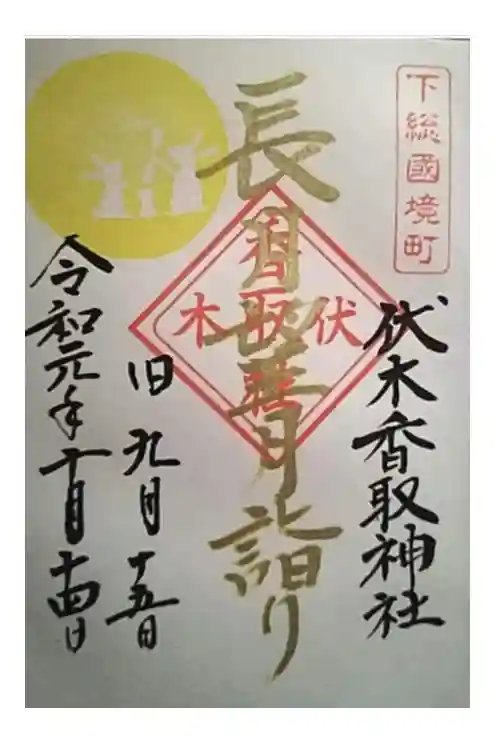 下総國境町
伏木香取神社
長月望月詣り
香取
伏木
旧九月十五日
令和元年十月十四日